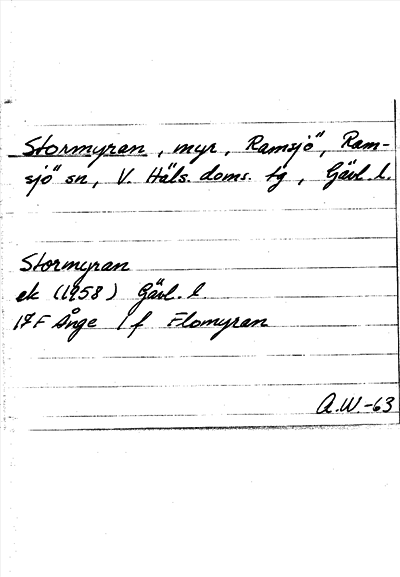 Stormyran, myr, Ramsjö, Ram-
sjö sn, V. Häls. doms. tg, Gävl. l.
Stormyran
ek (1958) Gävl. l.
17F Ånge 1 f Flomyran
A.W.-63